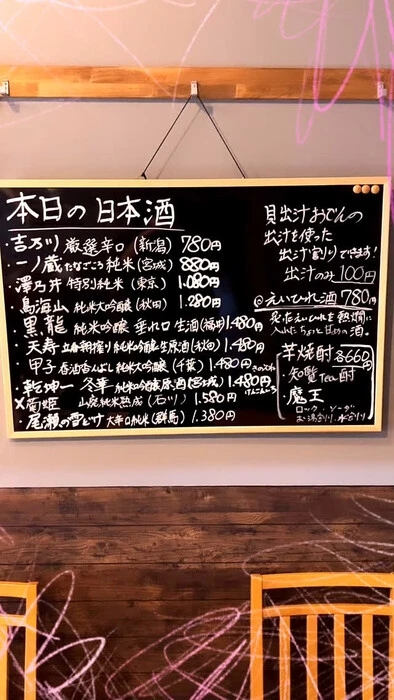 本日の日本酒
・吉乃川 厳選辛口 (新潟) 780円
・一ノ蔵 たなごころ 純米 (宮城) 880円
・澤乃井 特別純米 (東京) 1.080円
・鳥海山 純米大吟醸 (秋田) 1.280円
・黒龍 純米吟醸 垂れ口 生酒 (福井) 1.480円
・天寿 立春朝搾り 純米吟醸生原酒 (秋田) 1.480円
・甲子 純米大吟醸 (千葉) 1.480円
きのえね
・乾坤一 冬華 純米吟醸原酒 (宮城) 1.480円
けんこんいち
×菊姫 山廃純米熟成 (石川) 1.580円
・尾瀬の雪どけ 大辛口純米 (群馬) 1.380円
貝出汁おでんの
出汁を使った
出汁割りできます!
出汁のみ 100円
@えいひれ酒 780円
入れたちょと甘めの酒。
芋焼酎 各660円
・知覧Tea酎
・魔王
ロック・ソーダ
お湯割り・水割り